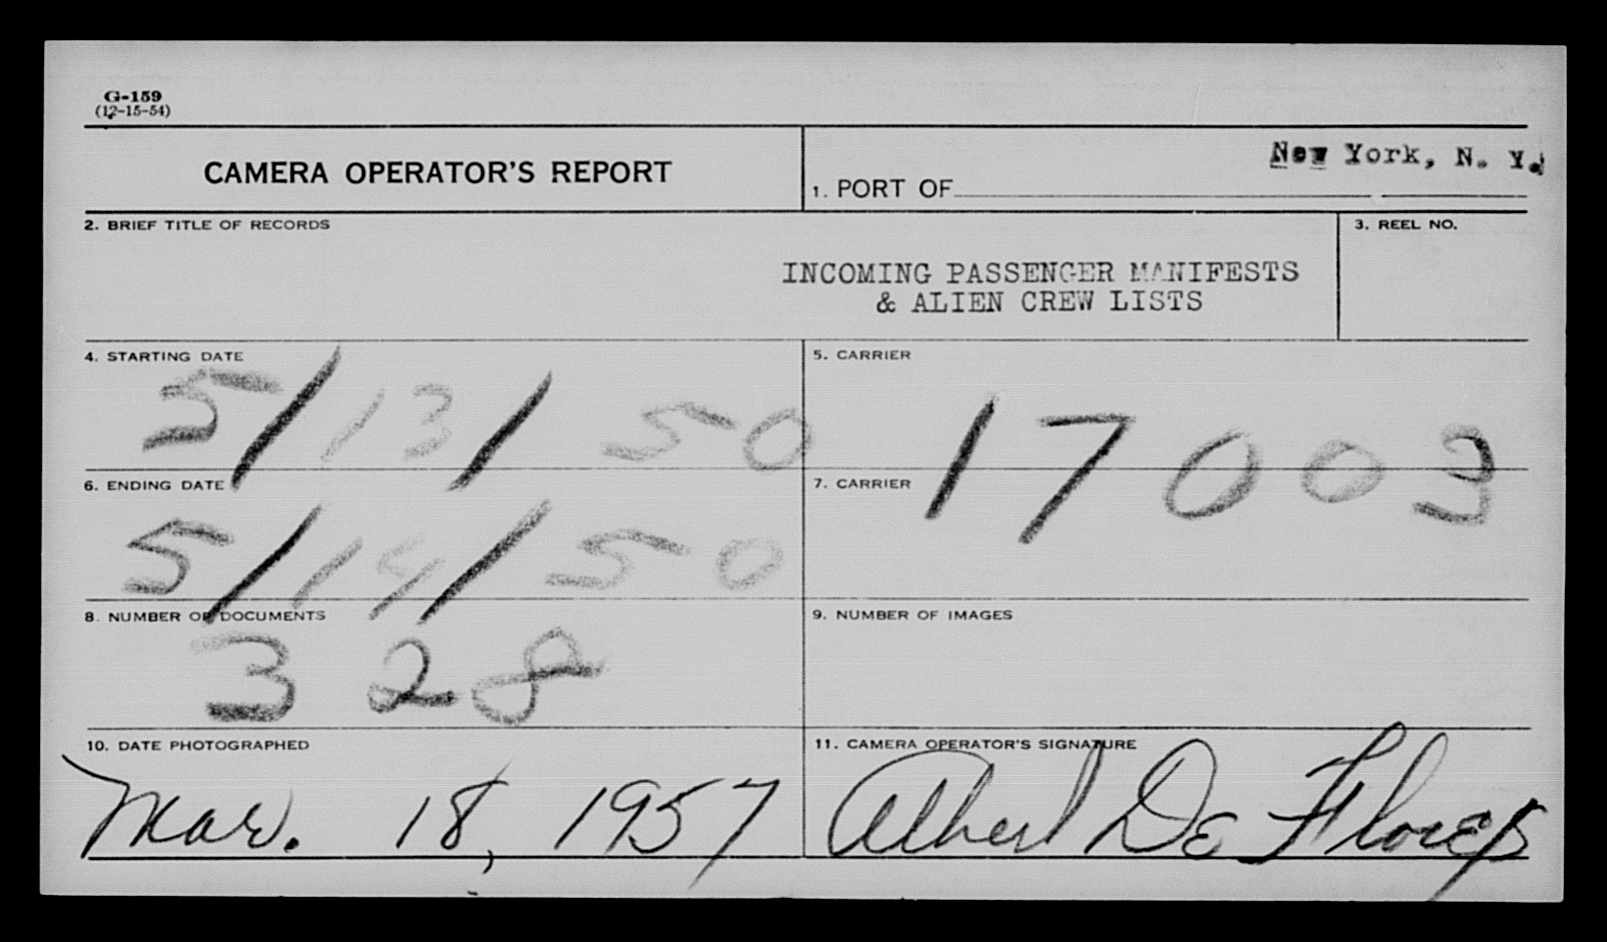 G-159
(12-15-54)
CAMERA OPERATOR'S REPORT
1. PORT OF New York, N. Y.
2. BRIEF TITLE OF RECORDS
3. REEL NO.
INCOMING PASSENGER MANIFESTS
& ALIEN CREW LISTS
4. STARTING DATE
5. CARRIER
5/13/50
17003
6. ENDING DATE
7. CARRIER
5/14/50
8. NUMBER OF DOCUMENTS
9. NUMBER OF IMAGES
328
10. DATE PHOTOGRAPHED
11. CAMERA OPERATOR'S SIGNATURE
Mar. 18, 1957
Albert De Flores